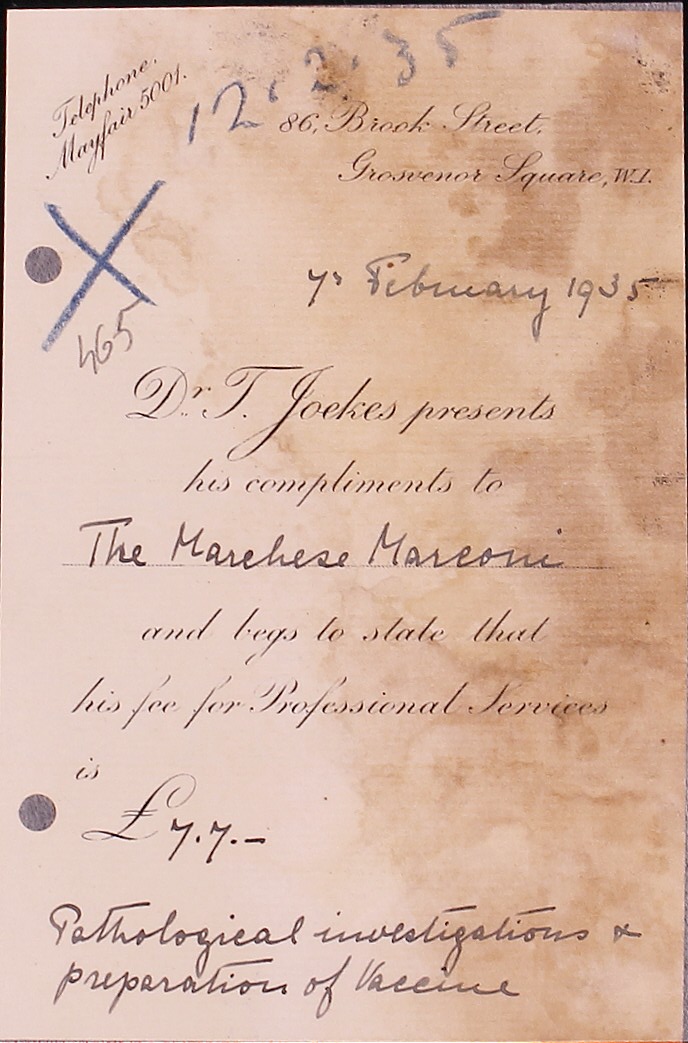 Telephone.
Mayfair 5001.
12.2.35
86, Brook Street.
Grosvenor Square, W.1.
7th February 1935
465
Dr. T. Joekes presents
his compliments to
The Marchese Marconi
and begs to state that
his fee for Professional Services
is
£ 7.7.-
Pathological investigations &
preparation of Vaccine